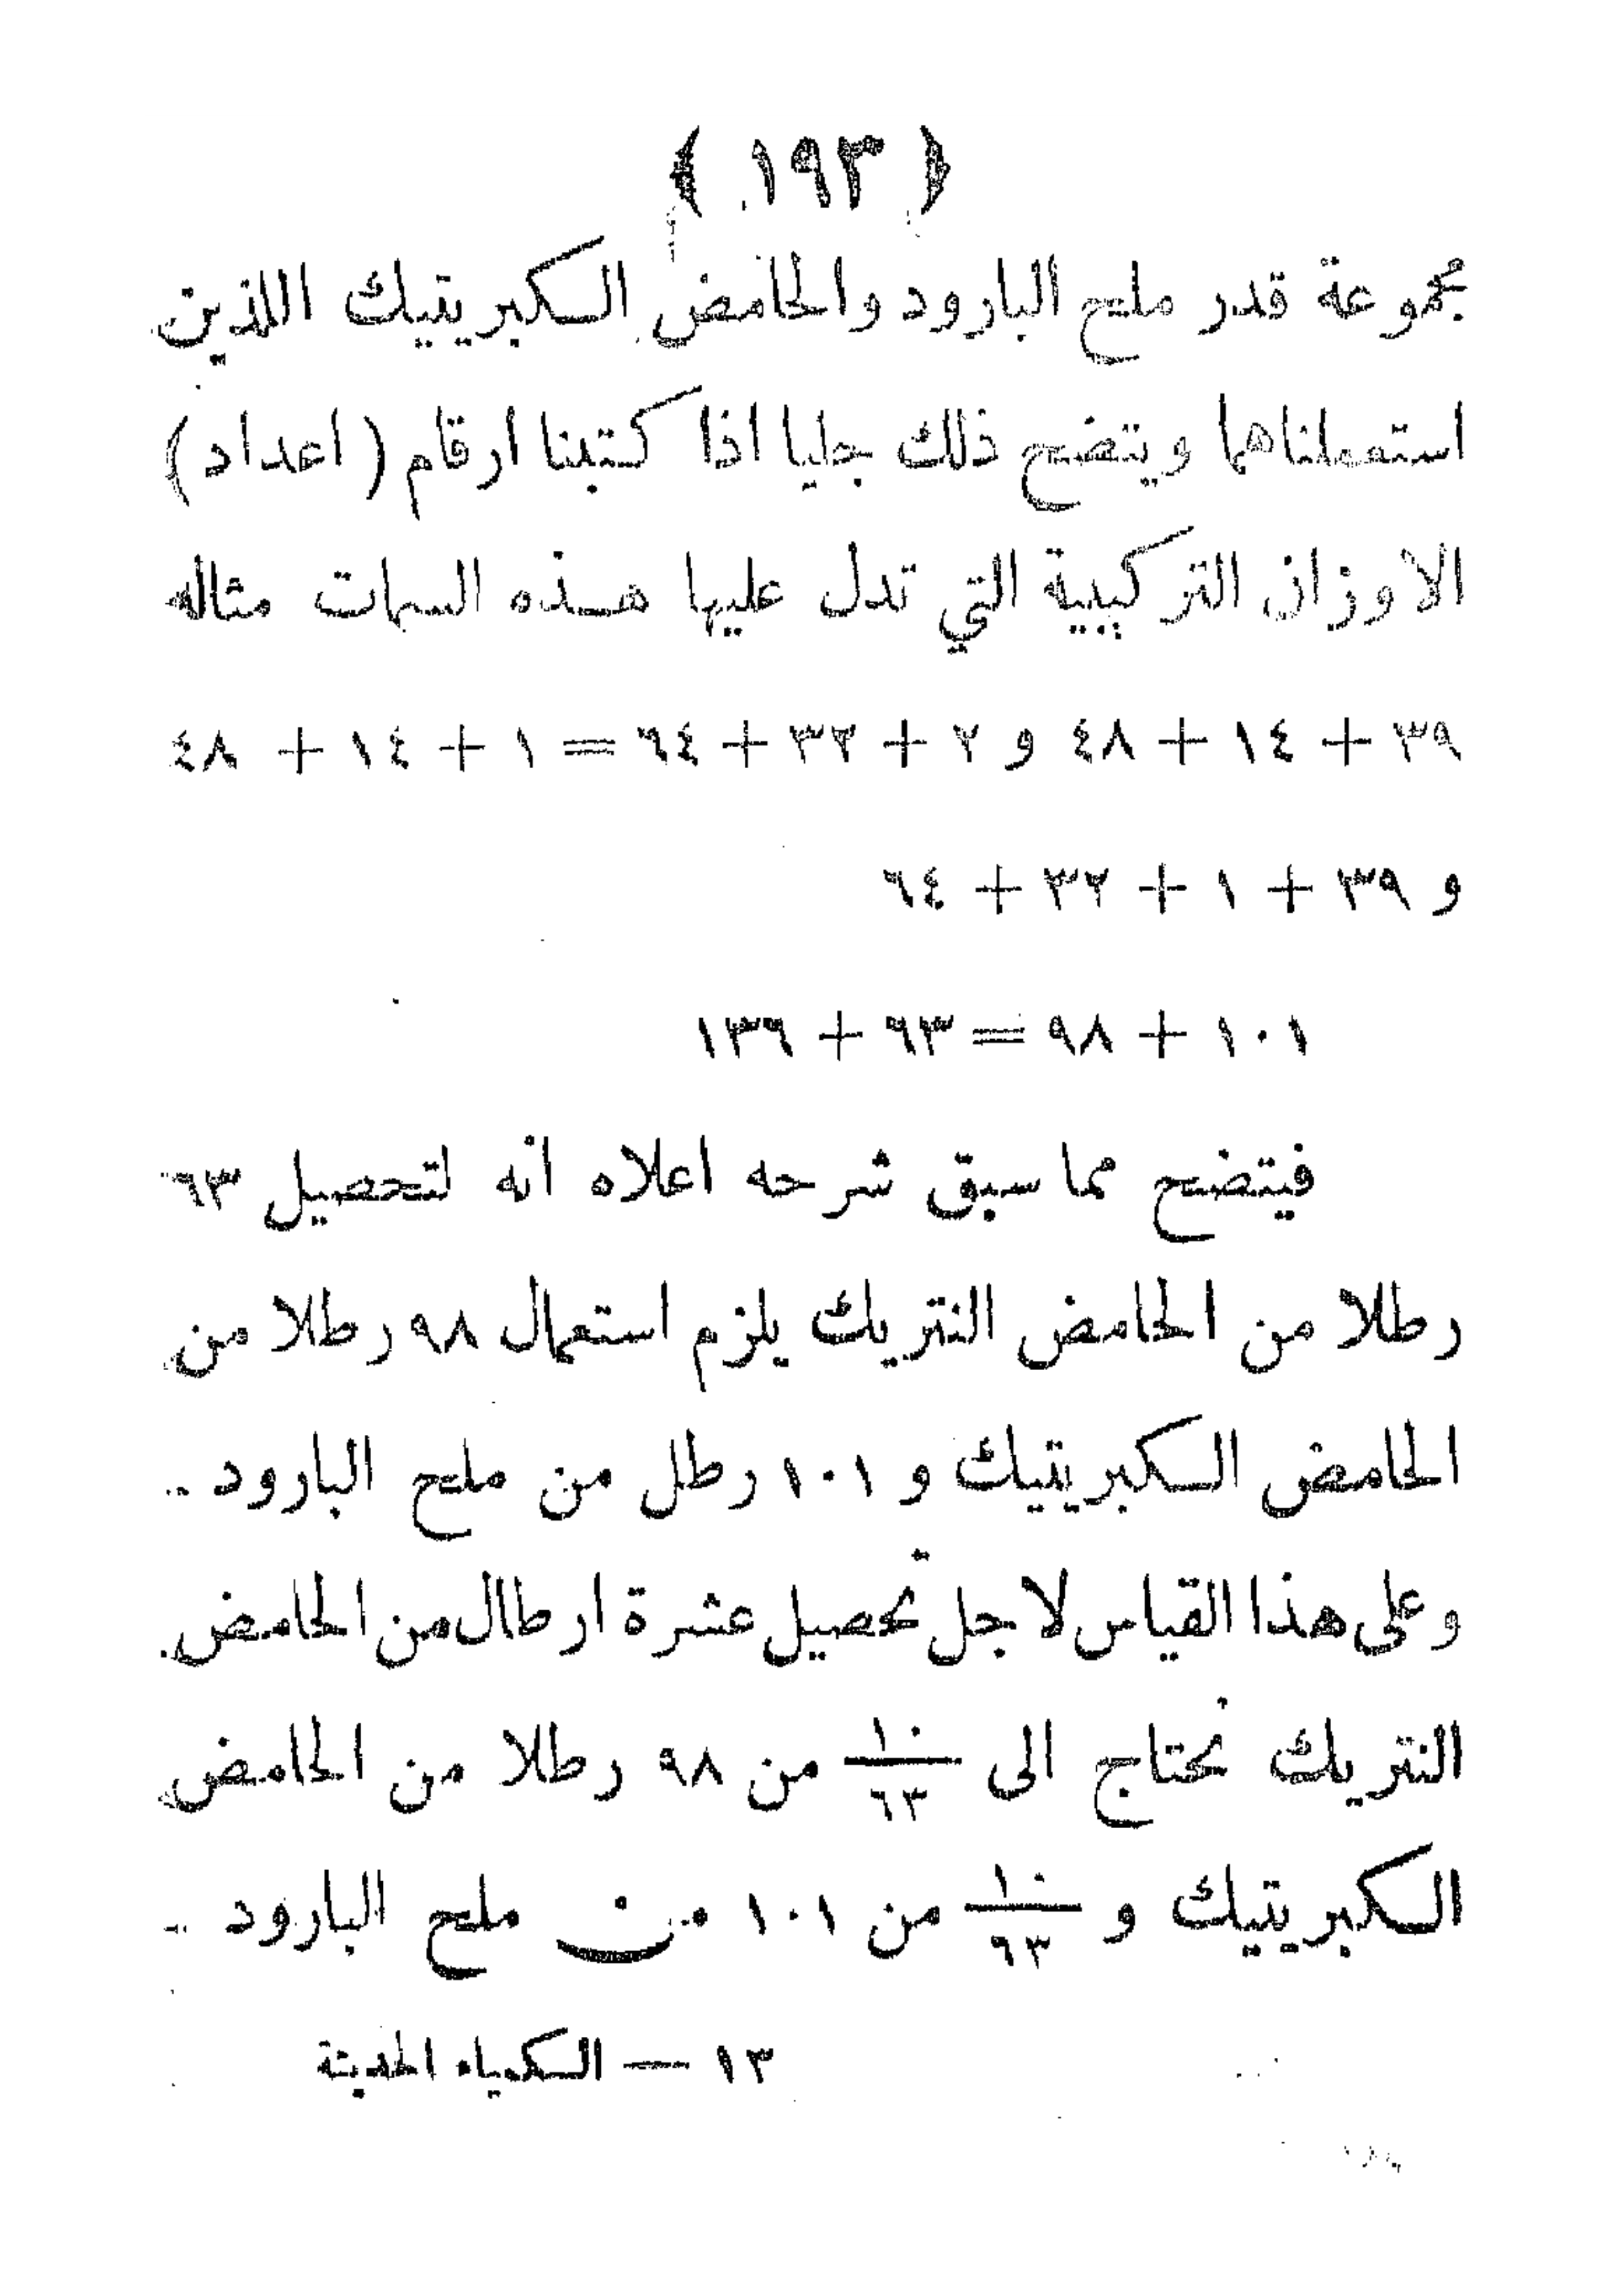 ﴿ ١٩٣ ﴾
مجموعة قدر ملح البارود والحامض الكبريتيك اللذين
استعملناهما ويتضح ذلك جليا اذا كتبنا ارقام ( اعداد )
الاوزان التركيبية التي تدل عليها هذه السمات مثاله
٣٩ + ١٤ + ٤٨ و ٢ + ٣٢ + ٦٤ = ١ + ١٤ + ٤٨
و ٣٩ + ١ + ٣٢ + ٦٤
١٠١ + ٩٨ = ٦٣ + ١٣٦
فيتضح مما سبق شرحه اعلاه انه لتحصيل ٦٣
رطلا من الحامض النتريك يلزم استعمال ٩٨ رطلا من
الحامض الكبريتيك و ١٠١ رطل من ملح البارود ..
وعلى هذا القياس لاجل تحصيل عشرة ارطال من الحامض
النتريك نحتاج الى ١٠/٦٣ من ٩٨ رطلا من الحامض
الكبريتيك و ١٠/٦٣ من ١٠١ من ملح البارود ..
١٣ — الكيمياء الحديثة